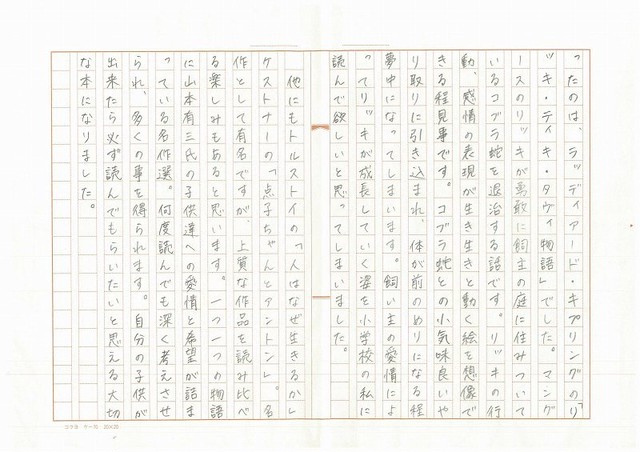 ったのは、ラッディアード・キプリングの「リ
ッキ・ティキ・タヴィ物語」でした。マング
ースのリッキが勇敢に飼主の庭に住みついて
いるコブラ蛇を退治する話です。リッキの行
動、感情の表現が生き生きと動く絵を想像で
きる程見事です。コブラ蛇との小気味良いや
り取りに引き込まれ、体が前のめりになる程
夢中になってしまいます。飼い主の愛情によ
ってリッキが成長していく姿を小学校の私に
読んで欲しいと思ってしまいました。
他にもトルストイの「人はなぜ生きるか」
ケストナーの「点子ちゃんとアントン」。名
作として有名ですが、上質な作品を読み比べ
る楽しみもあると思います。一つ一つの物語
に山本有三氏の子供達への愛情と希望が詰ま
っている名作選。何度読んでも深く考えさせ
られ、多くの事を得られます。自分の子供が
出来たら必ず読んでもらいたいと思える大切
な本になりました。
コクヨ ケ-70 20×20